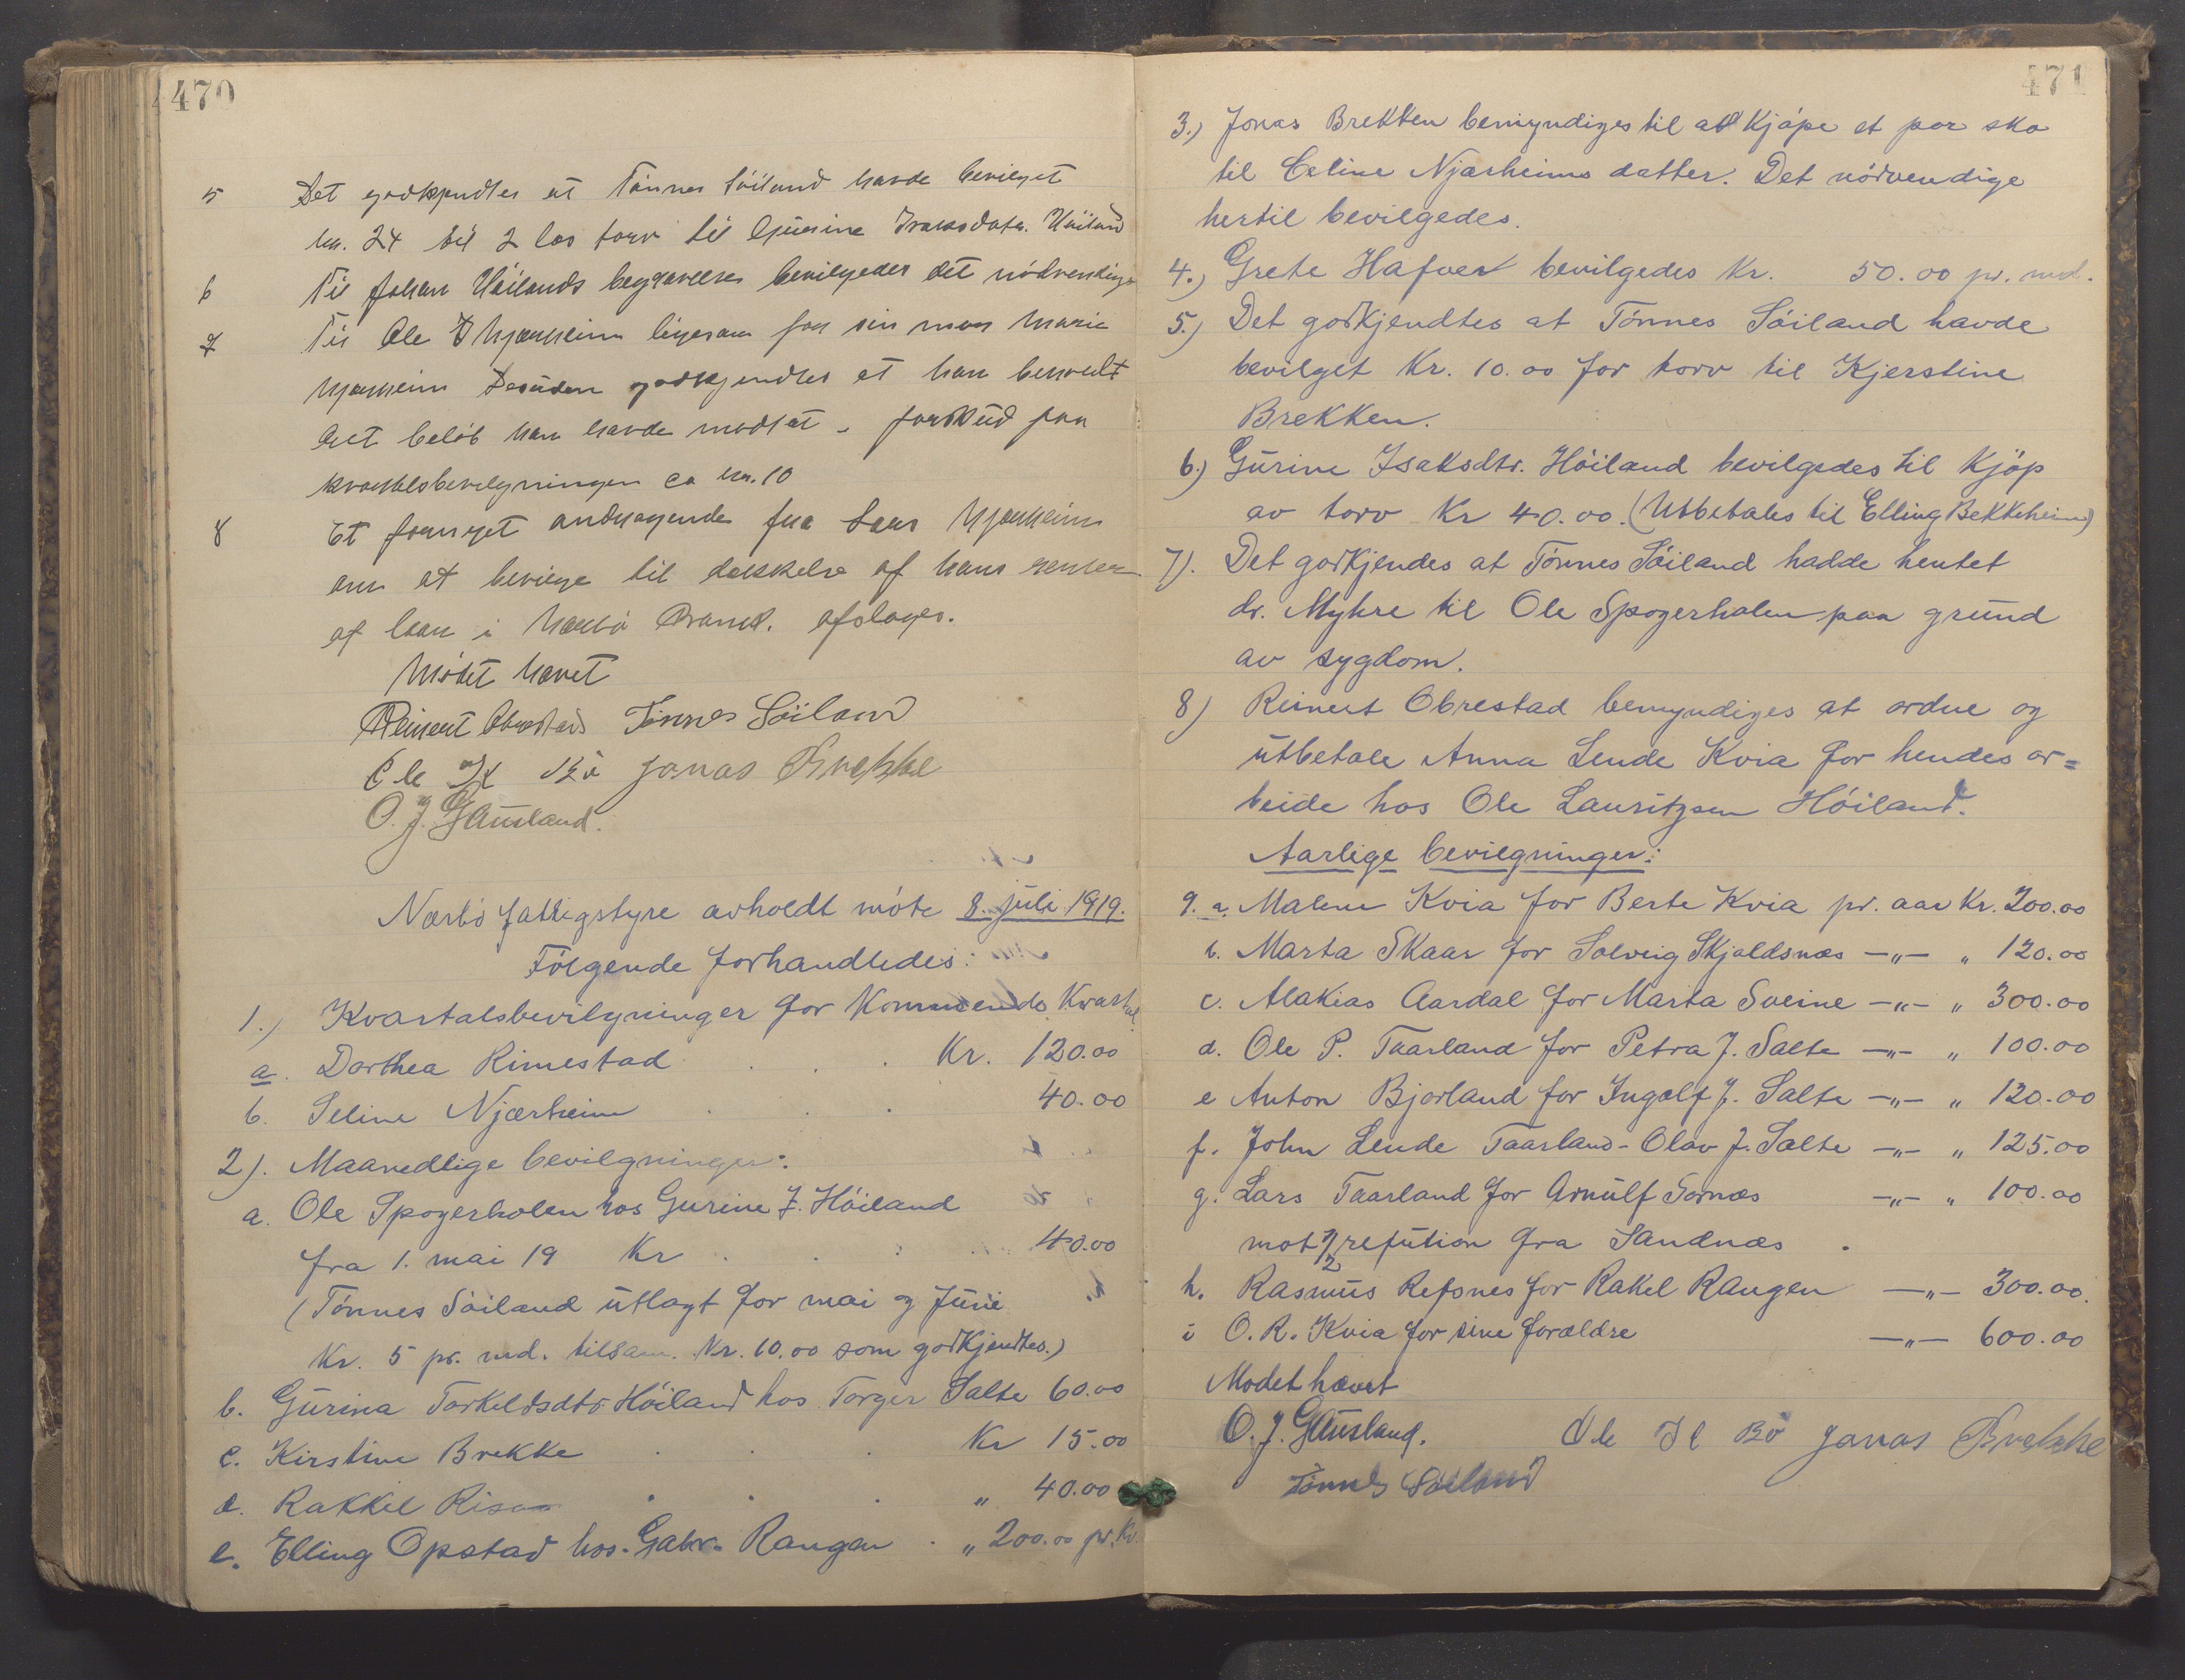 470
5 Det godkjendtes at Tønnes Söiland havde bevilget
kr. 24 til 2 las torv til Gurine Isaksdatr. Höiland
6 Til Johan Höilands begravelse bevilgedes det nödvendige
7 Til Ole Njærheim ligesaa for sin mor Marie
Njærheim Desuden godkjendtes at han beholdt
det beløb han havde modtat - forskud paa
kvartalsbevilgningen ca kr. 10
8 Et fornyet andragende fra Lars Njærheim
om at bevilge til dækkelse af hans renter
af laan i Nærbö Brand. afslages.
Mödet hævet
Reinert Obrestad Tönnes Söiland
Ole Bö Jonas Brekke
O. J. Gausland.
Nærbö fattigstyre avholdt möte 8. juli 1919.
Fölgende forhandledes:
1.) Kvartalsbevilgninger for Kommende Kvartal
a. Dorthea Rimestad . . . Kr. 120.00
b. Seline Njærheim . . . 40.00
2). Maanedlige bevilgninger:
a. Ole Spogerholen hos Gurine J. Höiland
fra 1. mai 19 Kr . . . 40.00
(Tönnes Söiland utlagt for mai og Juni
Kr. 5 pr. md. tilsam. Kr. 10.00 som godkjendtes.)
b. Gurina Torkeldsdtr Höiland hos Torger Salte 60.00
c. Kirstine Brekke . . . Kr 15.00
d. Rakkel Risa . . . " 40.00
e. Elling Opstad hos. Gabr. Raugan . " 200.00 pr. Kv.
471
3.) Jonas Brekken bemyndiges til at Kjöpe et par sko
til Celine Njærheims datter. Det nödvendige
hertil bevilgedes.
4.) Grete Hafver bevilgedes Kr. 50.00 pr. md.
5.) Det godkjendtes at Tönnes Söiland havde
bevilget Kr. 10.00 for torv til Kjerstine
Brekken.
6.) Gurine Isaksdtr. Höiland bevilgedes til Kjöp
av torv Kr 40.00. (Utbetales til Elling Bekkeheim)
7). Det godkjendes at Tönnes Söiland hadde hentet
dr. Myhre til Ole Spogerholen paa grund
av sygdom.
8) Reinert Obrestad bemyndiges at ordne og
utbetale Anna Lende Kvia for hendes ar=
beide hos Ole Lauritzsen Höiland.
Aarlige bevilgninger:
9. a. Malene Kvia for Berte Kvia pr. aar Kr. 200.00
b. Marta Skaar for Solveig Skjoldsnæs —"— " 120.00
c. Alakias Aardal for Marta Sveine —"— " 300.00
d. Ole P. Taarland for Petra J. Salte —"— " 100.00
e Anton Bjorland for Ingolf J. Salte —"— " 120.00
f. John Lende Taarland - Olav J. Salte —"— " 125.00
g. Lars Taarland for Arnulf Tornæs —"— " 100.00
mot 1/2 refution fra Sandnæs .
h. Rasmus Refsnes for Rakel Raugen —"— 300.00.
i O. R. Kvia for sine forældre —"— 600.00
Modet hævet
O. J. Gausland. Ole Bö Jonas Brekke
Tönnes Söiland